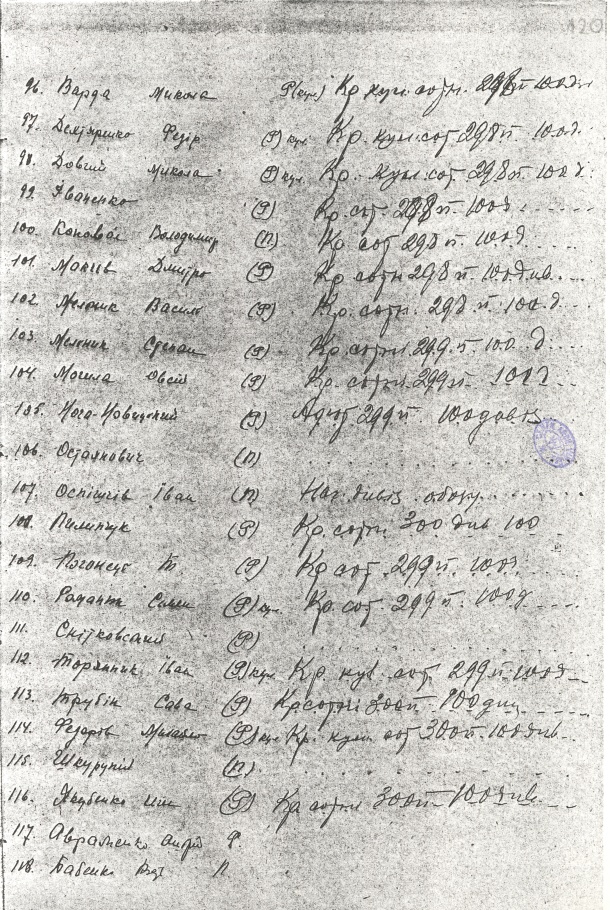 120
96. Варда Микола Р(кул.) Кр. кул. сотн. 298 п 100д.
97. Дехтяренко Федір (Р) кул. Кр. кул. сот 298 п 100д.
98. Довгий Микола (Р) кул. Кр. кул. сот. 298 п. 100 д.
99. Іваненко (Р) Кр. сот. 298 п. 100д
100. Коновал Володимир (П) Кр сот 298 п. 100д.
101. Дмитро (Р) Кр сотн 298 п. 100 див.
102. Мельник Василь (Р) Кр. сотн. 298 п. 100 д.
103. Мельник Степан (Р) Кр. сотн. 299 п. 100 д.
104. Могила Овсій (Р) Кр. сотн. 299 п. 100д
105. Нога-Новицький (Р) Ад'ют 299 п. 100 дивіз
106. Остаянович (П)
107. Оспіщів Іван (П) Нач. дивіз. обозу
108. Пилипчук (Р) Кр. сотн. 300 див 100
109. (Р) Кр сот. 299 п. 100д.
110. (Р) кул. Кр. сот. 299 п. 100д
111. Снітковський (Р)
112. Іван (Р) кул. Кр. кул. сот. 299 п. 100д
113. Трубін Сава (Р) Кр сотні 300 п. 100 див.
114. Федорів (Р) кул. Кр. кулем сот 300 п. 100 див.
115. Шкурупій (П).
116. Якубенко (Р) Кр сотні 300 п 100 див.
117. Авраменко Андрій Р.
118. Бабенко П